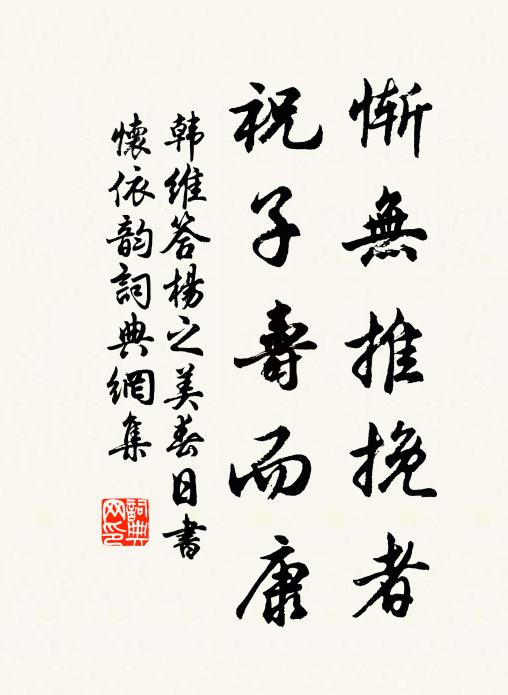 慚無推挽者
祝子壽而康
韩維答楊之美春日書
懷依韵詞典網集
詞典网印